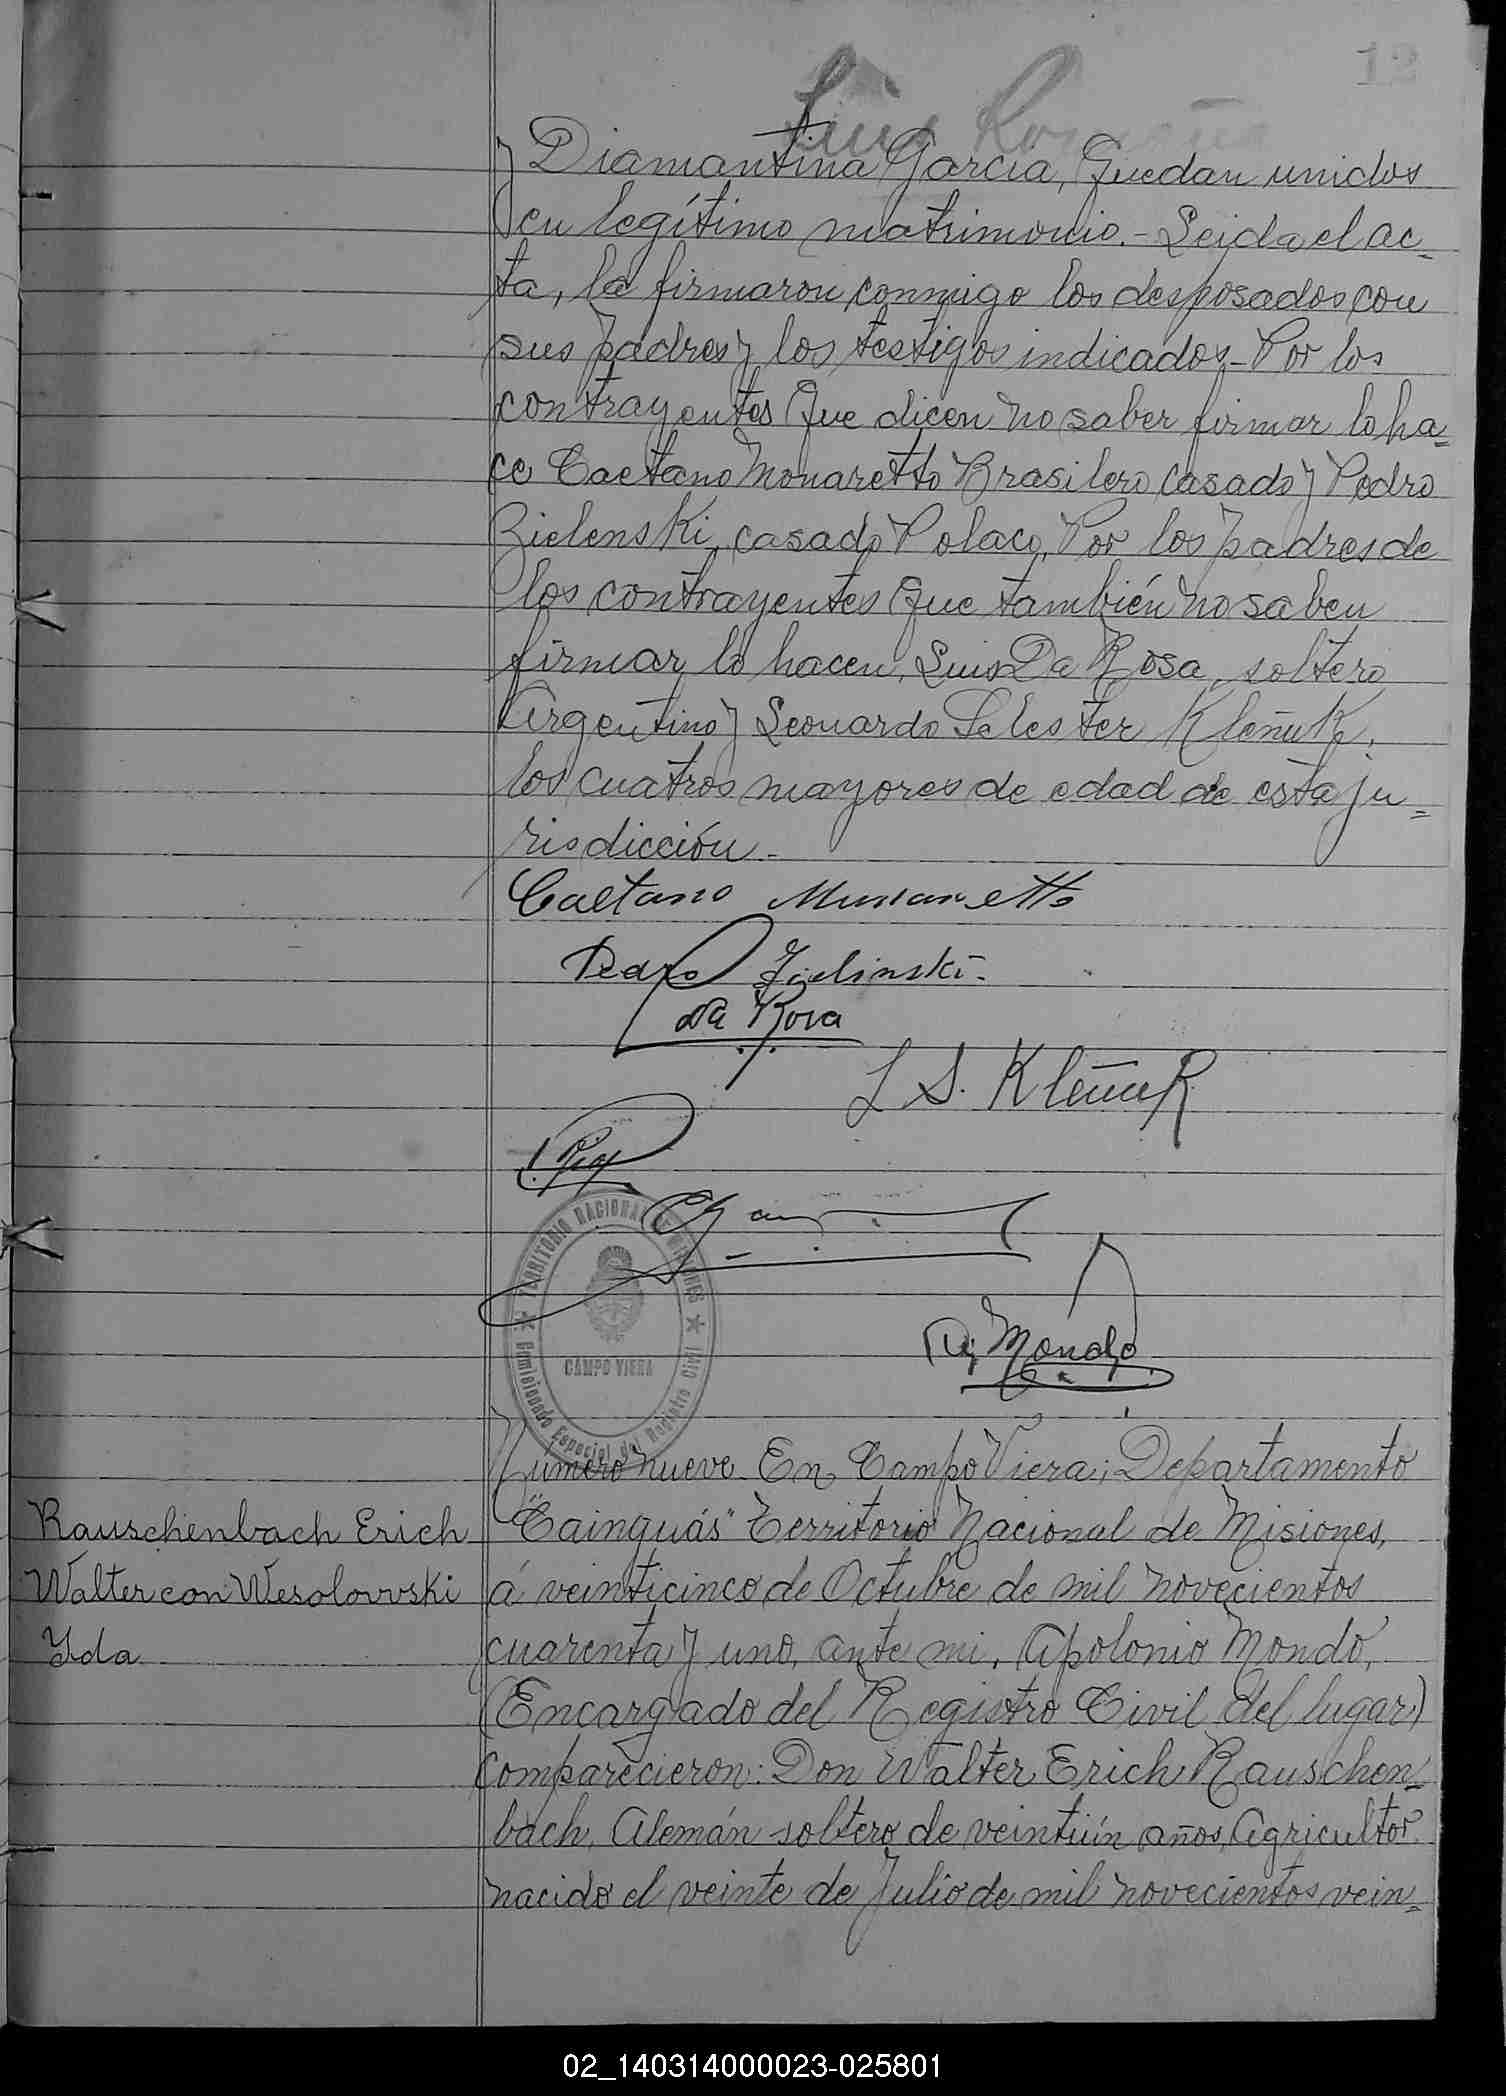 12
Luis
y Diamantina Garcia, Quedan unidos
en legítimo matrimonio.- Leida el ac=
ta, la firmaron conmigo los desposados con
sus padres y los testigos indicados- Por los
contrayentes que dicen no saber firmar lo ha=
ce Caetano Monaretto Brasilero casado y Pedro
Zielenski, casado Polaco, Por los padres de
los contrayentes que también no saben
firmar lo hacen, Luis Da Rosa, soltero
Argentino y Leonardo Selester Kleñuk,
los cuatros mayores de edad de esta ju=
risdicción-
Caetano
Pedro Zielinski-
da Rosa
L S. Kleñuk
TERRITORIO NACIONAL DE MISIONES
CAMPO VIERA
Comisionado Especial del Registro Civil
Mondo
Número nueve- En Campo Viera; Departamento
Rauschenbach Erich
Walter con Wesolowski
Yda
"Cainguás" Territorio Nacional de Misiones,
á veinticinco de Octubre de mil novecientos
cuarenta y uno, ante mi, Apolonio Mondo,
(Encargado del Registro Civil del lugar)
comparecieron: Don Walter Erich Rauschen=
bach, Alemán soltero de veintiún años, Agricultor,
nacido el veinte de Julio de mil novecientos vein=
02_140314000023-025801